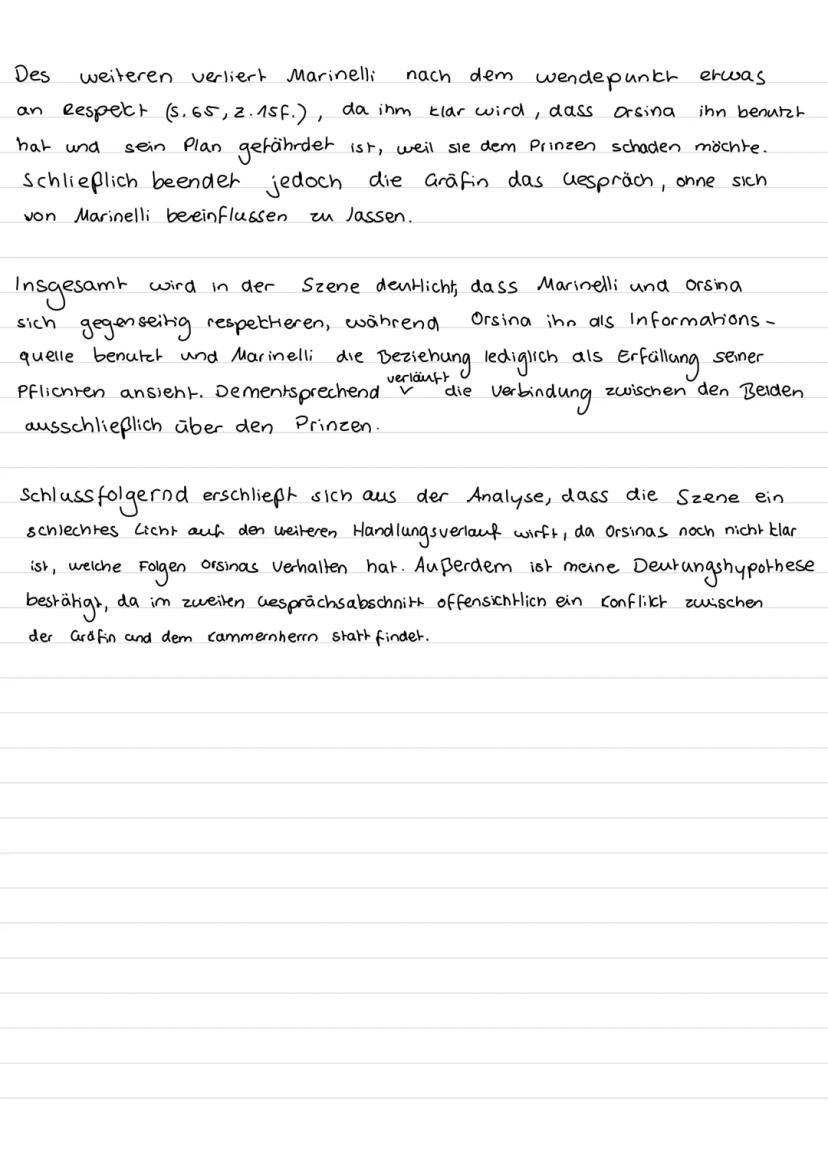 Des weiteren verliert Marinelli nach dem wendepunkt etwas
an Respekt (S. 65, Z. 15f.), da ihm klar wird, dass Orsina ihn benutzt
hat und sein Plan gefährdet ist, weil sie dem Prinzen schaden möchte.
Schließlich beendet jedoch die Gräfin das Gespräch, ohne sich
von Marinelli beeinflussen zu lassen.
Insgesamt wird in der Szene deutlicht, dass Marinelli und Orsina
sich gegenseitig respektieren, während Orsina ihn als Informations-
quelle benutzt und Marinelli die Beziehung lediglich als Erfüllung seiner
Pflichten ansieht. Dementsprechend verläuft die Verbindung zwischen den Beiden
ausschließlich über den Prinzen.
Schlussfolgernd erschließt sich aus der Analyse, dass die Szene ein
schlechtes Licht auf den weiteren Handlungsverlauf wirft, da Orsinas noch nicht klar
ist, welche Folgen Orsinas Verhalten hat. Außerdem ist meine Deutungshypothese
bestätigt, da im zweiten Gesprächsabschnitt offensichtlich ein Konflikt zwischen
der Gräfin und dem Kammernherrn statt findet.